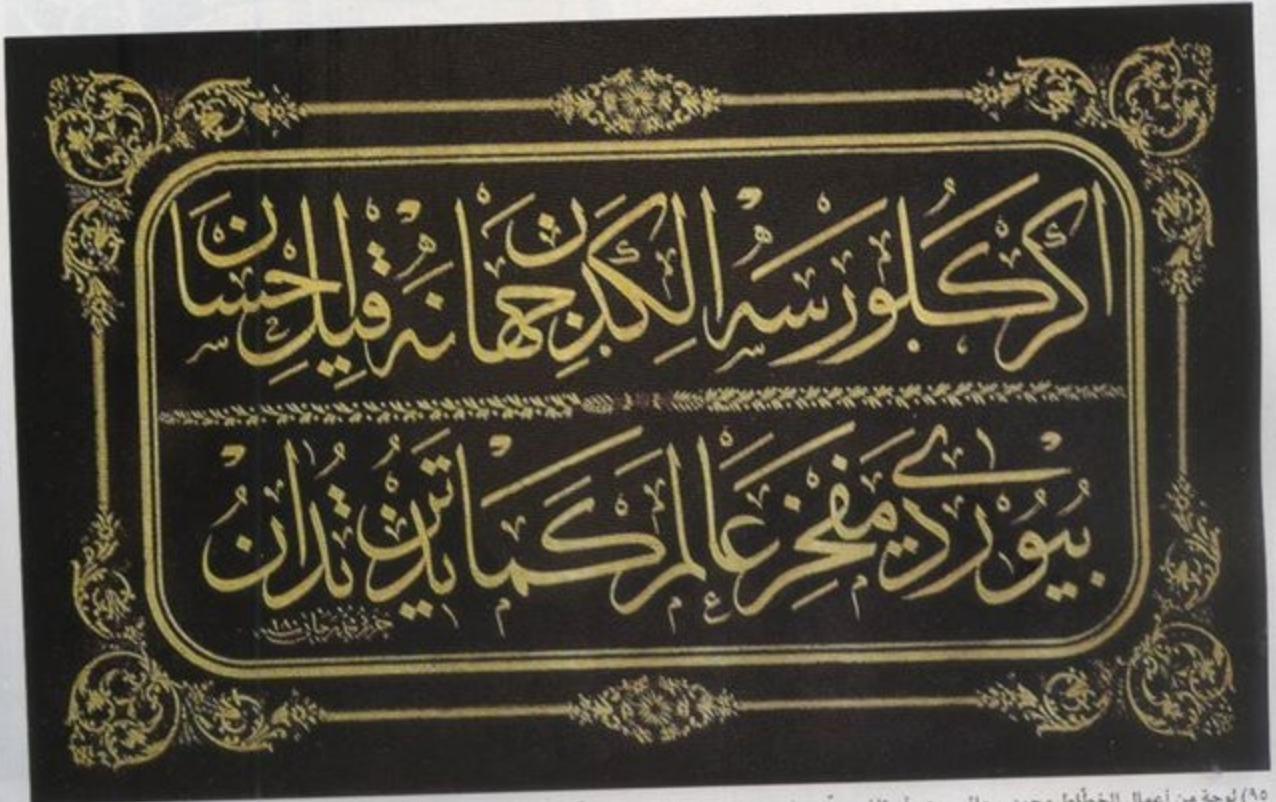 اكر كلورسه الكدن جهانه قيل احسان
بيوردى مفخر عالم كما تدين تدان
٩٥) لوحة من أعمال الخطاط